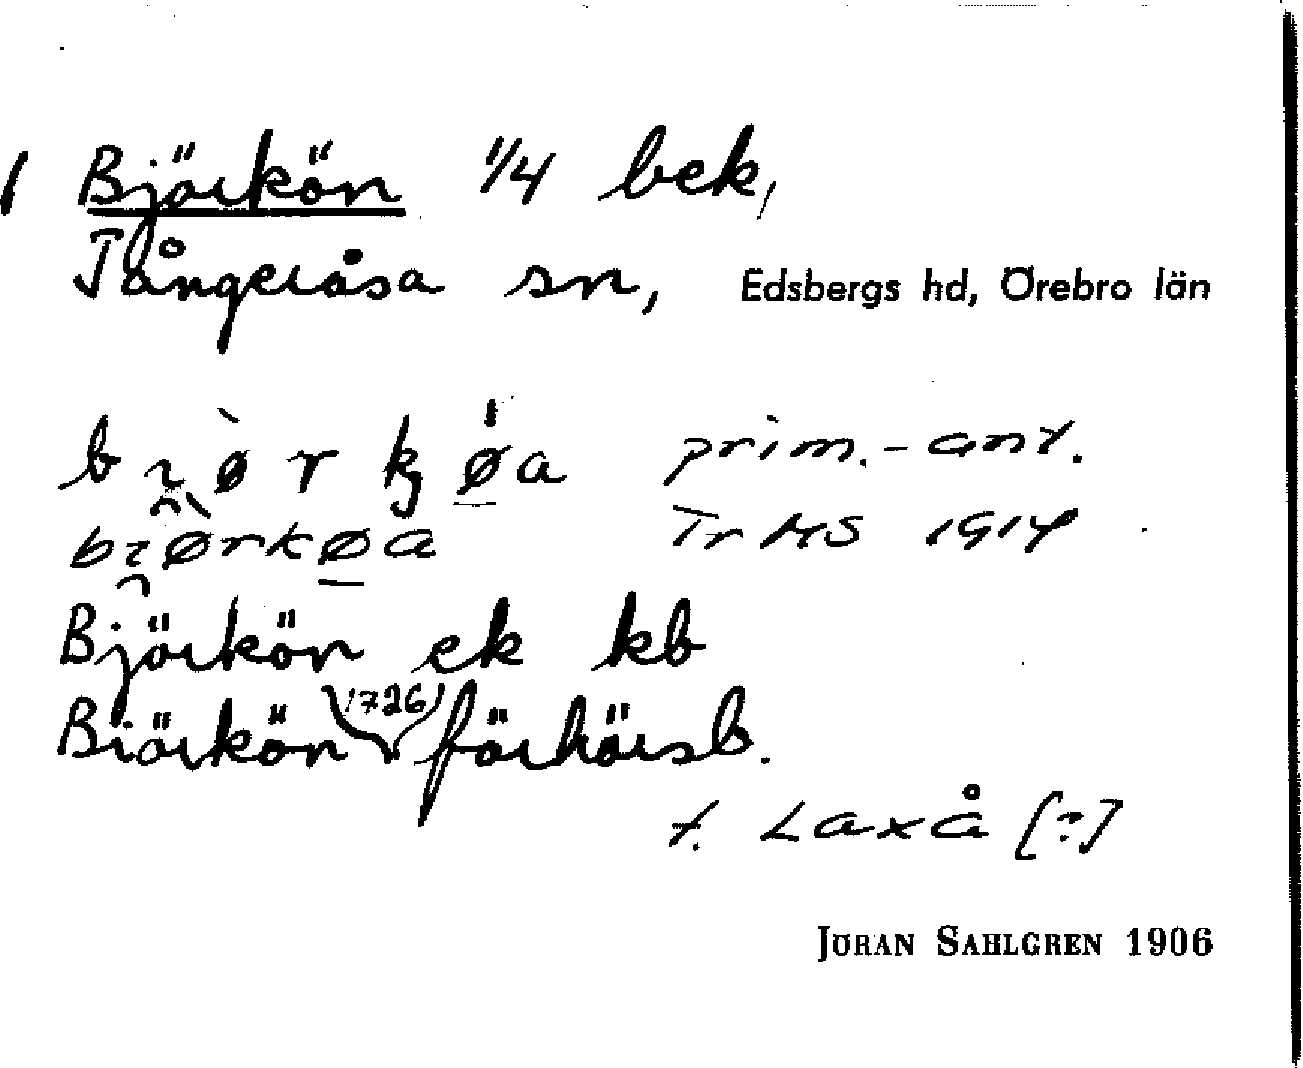 Björkön 1/4 bek,
Tångeråsa sn, Edsbergs hd, Örebro län
bı̯ørkø̱a prim.-ant.
bı̯ørkø̱a Tr HS 1914
Björkön ek kb
Biörkön (1726) förhörsb.
t. Laxå [?]
JÖRAN SAHLGREN 1906